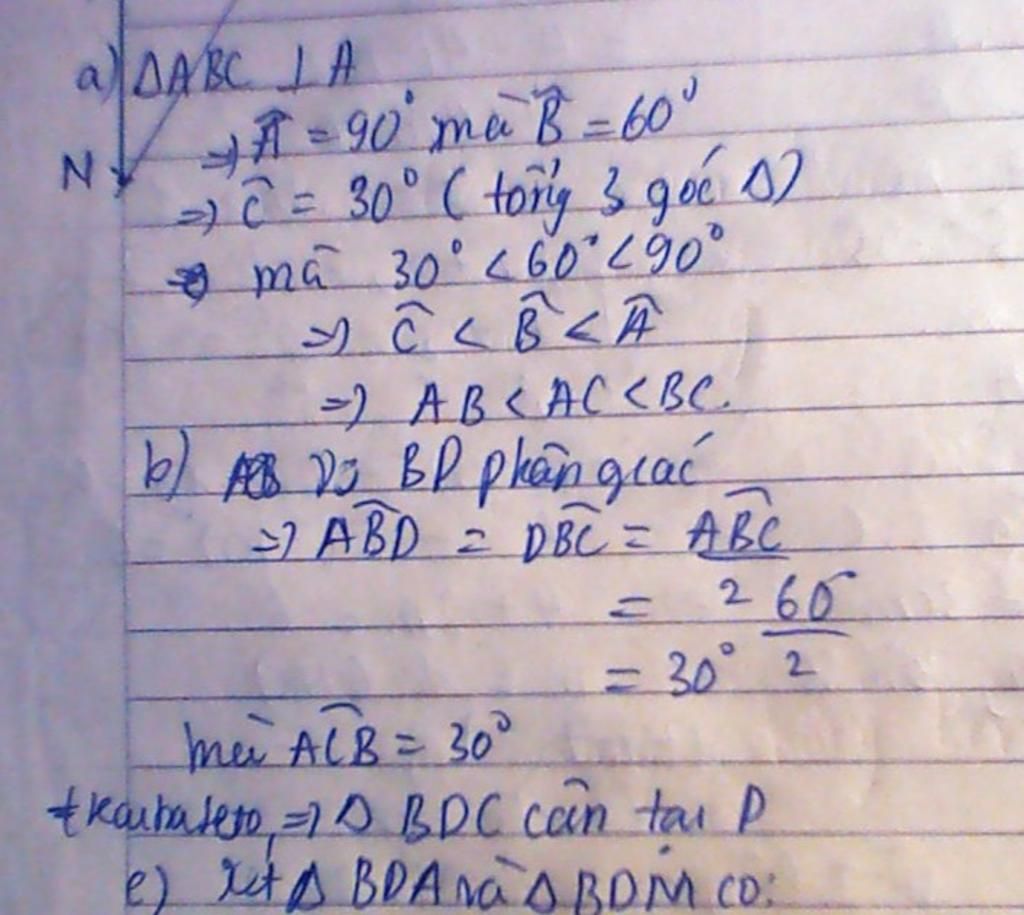 a) ΔABC ⊥ A
⇒ Â = 90° mà B̂ = 60°
N
⇒ Ĉ = 30° (tổng 3 góc Δ)
mà 30° < 60° < 90°
⇒ Ĉ < B̂ < Â
⇒ AB < AC < BC.
b) Do BD phân giác
⇒ ABD̂ = DBĈ = ABĈ / 2
= 60 / 2
= 30°
mà ACB̂ = 30°
⇒ Δ BDC cân tại D
c) Xét Δ BDA và Δ BDM có: